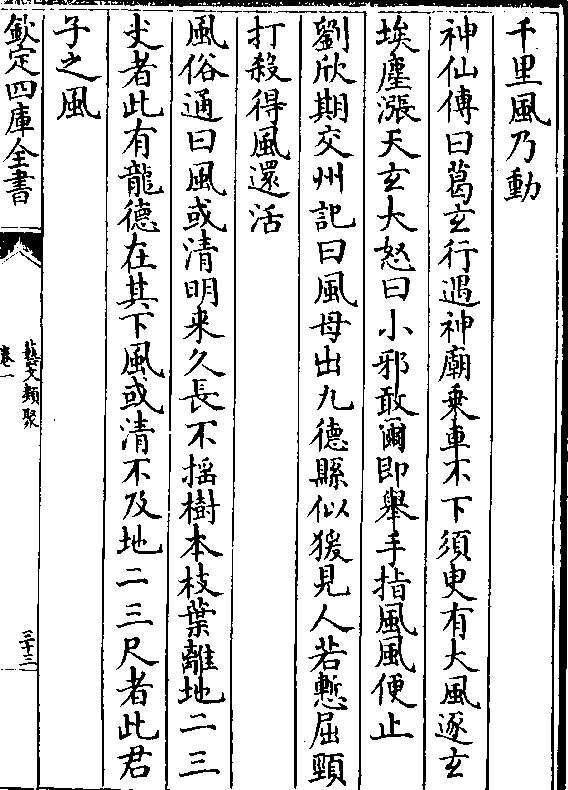 千里風乃動
神仙傳曰葛玄行遇神廟乗車不下須臾有大風逐玄
埃塵漲天玄大怒曰小邪敢爾即舉手指風風便止
劉欣期交州記曰風母出九徳縣似猨見人若慙屈頸
打殺得風還活
風俗通曰風或清明来久長不揺樹木枝葉離地二三
丈者此有龍徳在其下風或清不及地二三尺者此君
子之風
欽定四庫全書
藝文類聚
卷一
三十三